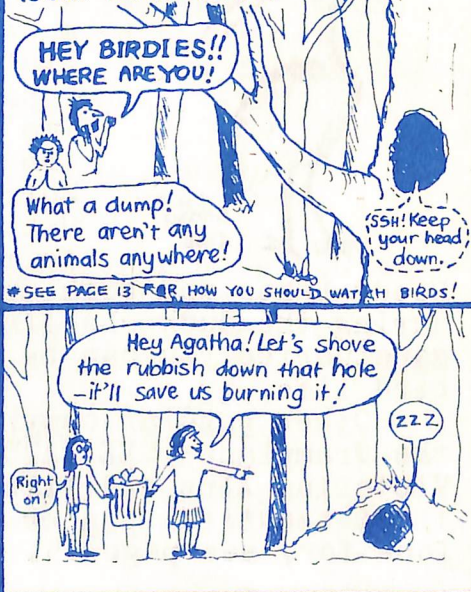 HEY BIRDIES!!
WHERE ARE YOU!
What a dump!
There aren't any
animals anywhere!
SSH! Keep
your head
down.
* SEE PAGE 13 FOR HOW YOU SHOULD WATCH BIRDS!
Hey Agatha! Let's shove
the rubbish down that hole
-it'll save us burning it!
Right
on!
ZZZ